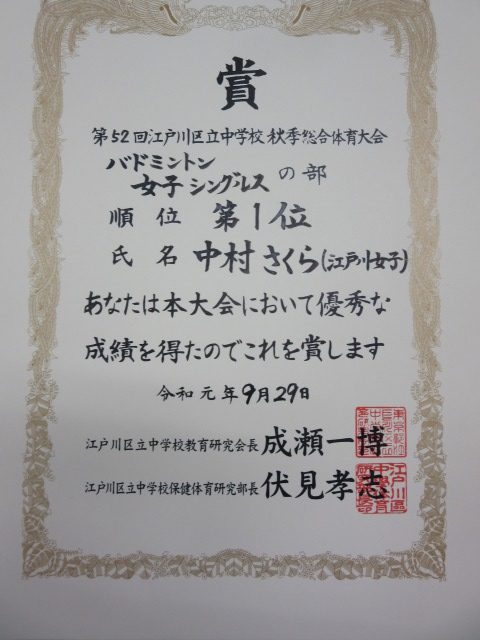 賞
第52回江戸川区立中学校秋季総合体育大会
バドミントン
女子シングルス の部
順位 第1位
氏名 中村さくら(江戸川女子)
あなたは本大会において優秀な
成績を得たのでこれを賞します
令和元年9月29日
江戸川区立中学校教育研究会長 成瀬一博
江戸川区立中学校保健体育研究部長 伏見孝志